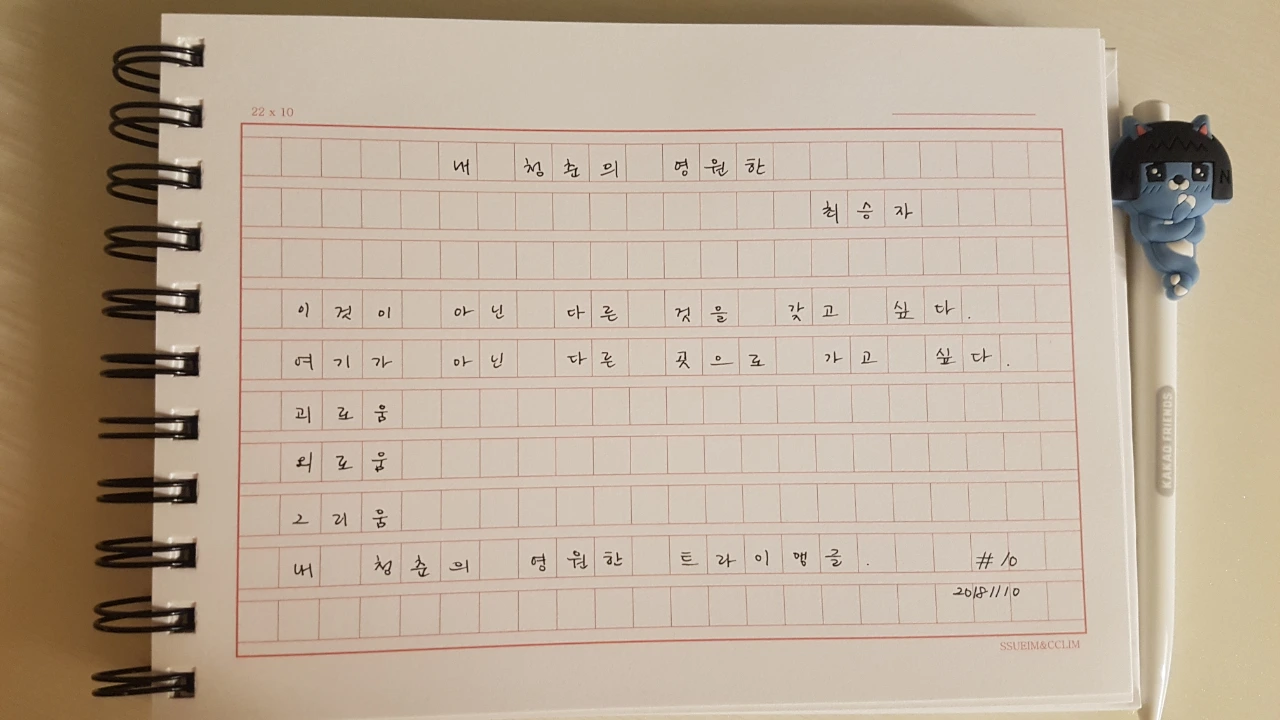 22 x 10
내 청춘의 영원한
최승자
이것이 아닌 다른 것을 갖고 싶다.
여기가 아닌 다른 곳으로 가고 싶다.
괴로움
외로움
그리움
내 청춘의 영원한 트라이앵글. #10
20181110
SSUEIM&CCLIM
KAKAO FRIENDS
N